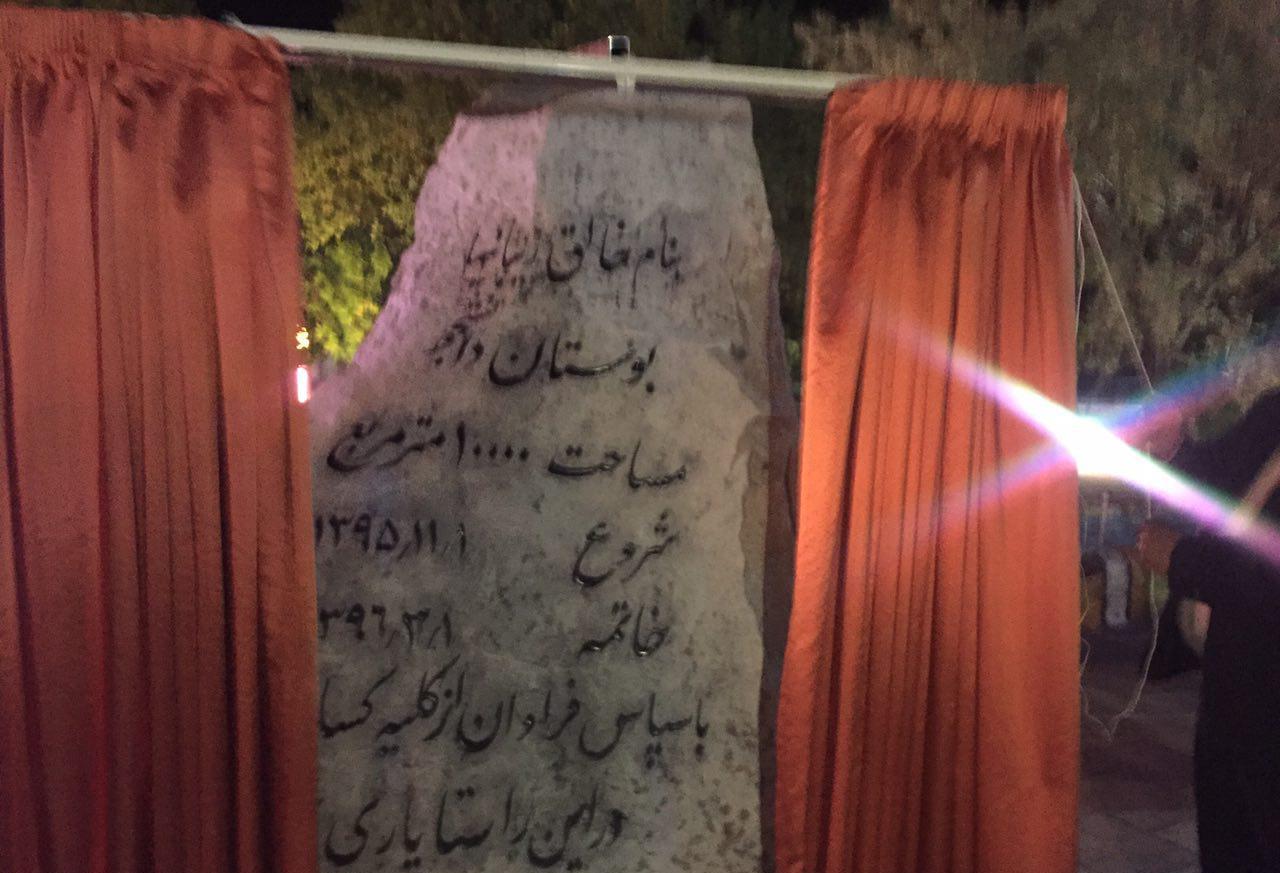 بنام خالق زیبائیها
بوستان دانشجو
مساحت ۱۰۰۰۰ مترمربع
شروع ۱۳۹۵٫۱۱٫۱
خاتمه ۳۹۶٫۳٫۱
با سپاس فراوان از کلیه کسا
در این راستا یاری